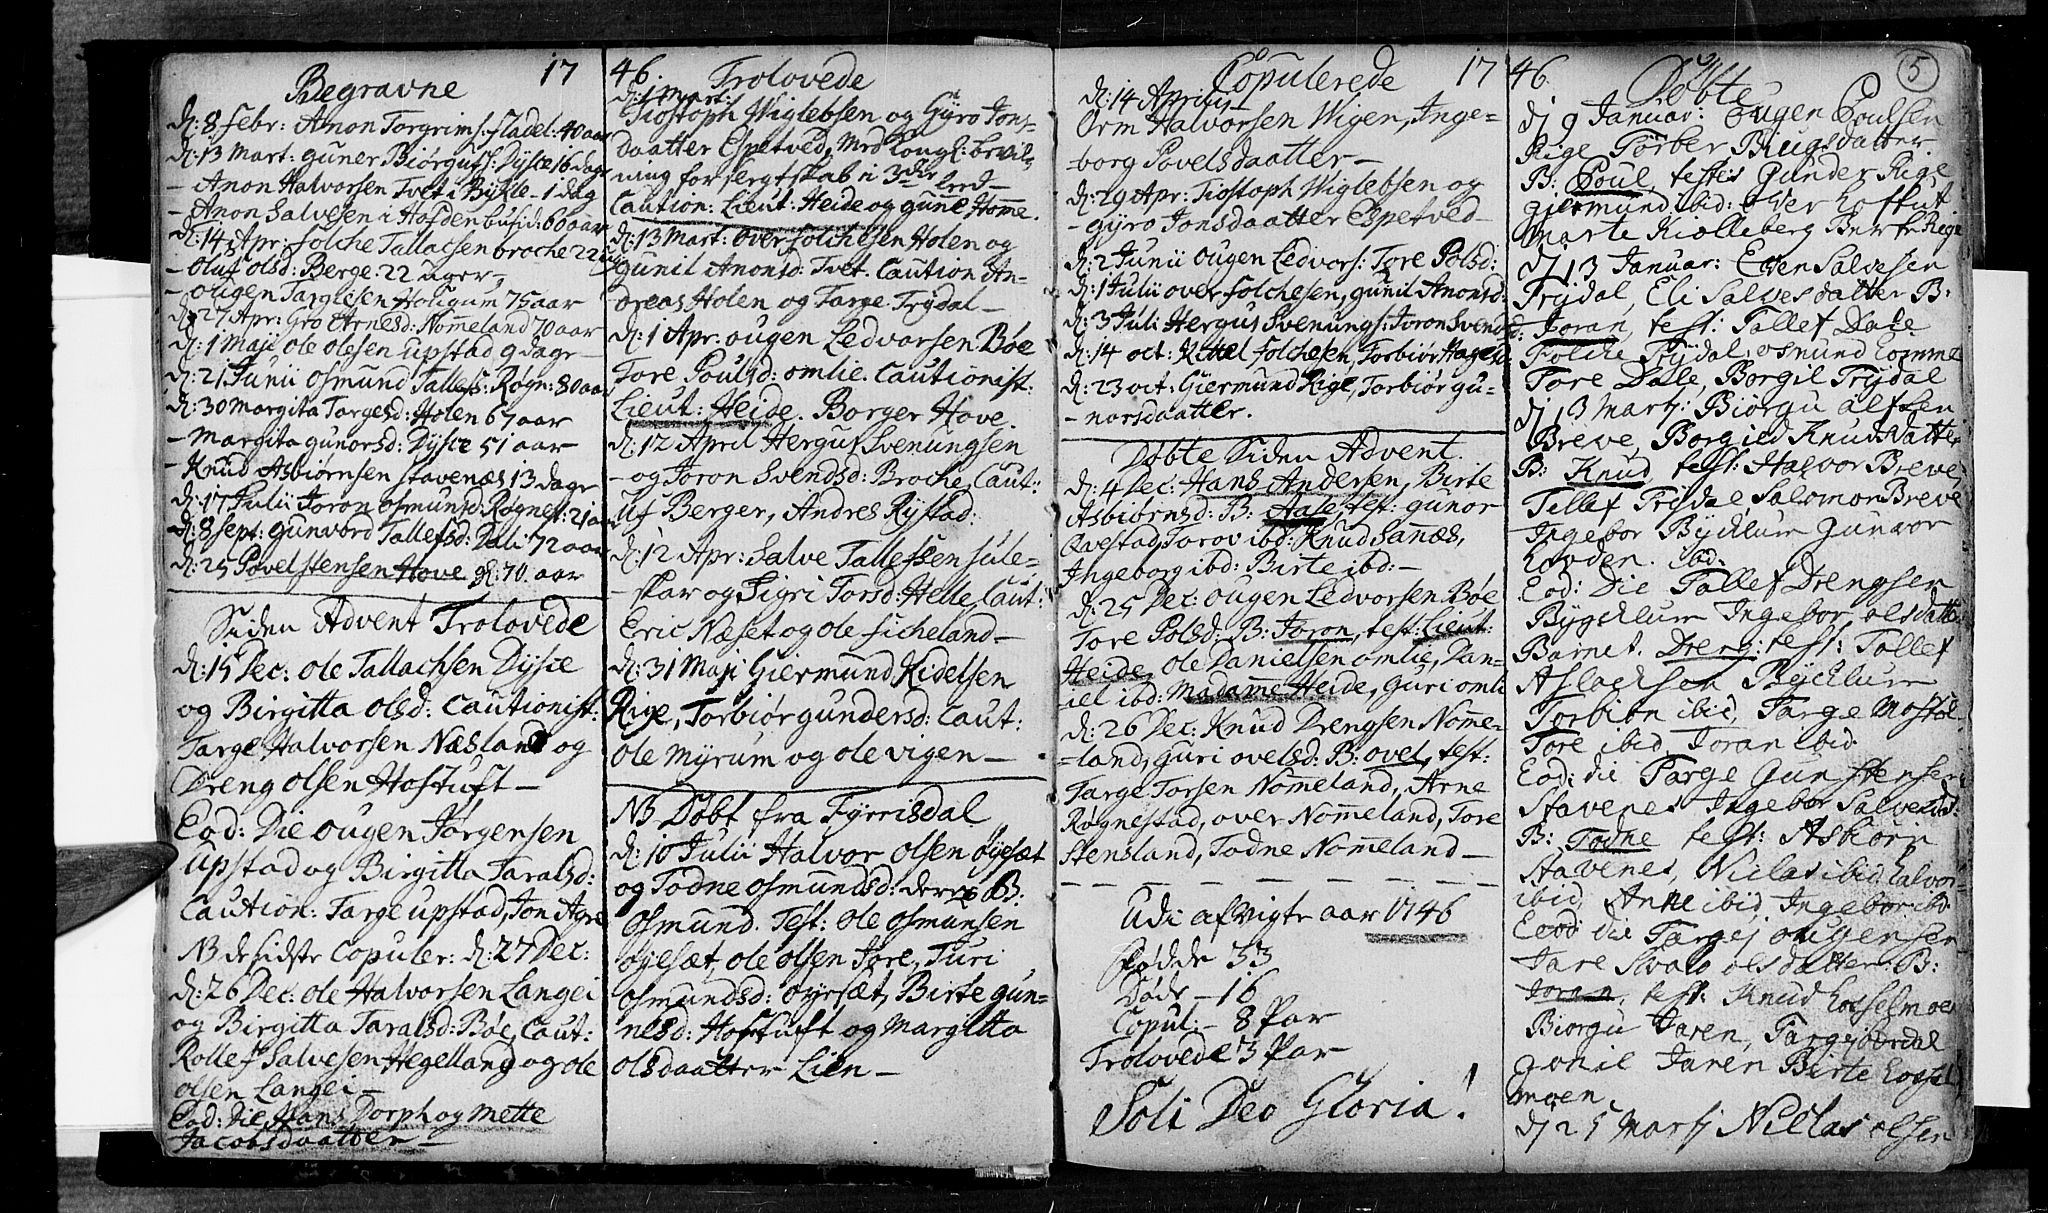 Begravne 17
d: 8 febr: Anon Torgrims: fladel: 40 aar
d: 13 Mart: guner Biørgufs: Dysce 16 dage
– Anon Halvorsen Tvet i Bykle – 1 dag
– Anon Salvesen i Hofden busid: 60 aar
d: 14 Apr: folche Tallacsen broche 22
– Oluf olsd: Berge 22 uger –
– ougen Targiesen Holigum 75 aar
d: 27 Apr: Gro Arnesd: Nomeland 70 aar
d: 1 Maji ole olesen upstad 9 dage –
d: 21 Junii osmund Tallefs: Røgn: 80 aar
d: 30 Margita Targesd: Holen 67 aar
– Margita gunorsd: Dysce 51 aar
– Knud Asbiørnsen stavenæs 13 dage
d: 17 Julii Joron osmunsd Røgnest: 21 aar
d: 8 sept: gunvord Tallefsd: Dali 72 aar
d: 25 Povel stensen Hove gl: 70 aar
Siden Advent Trolovede
d: 15 Dec: ole Tallachsen Dysce
og Birgitta olsd: Cautionist:
Targe Halvorsen Næsland og
Dreng olsen Hoftuft –
Eod: Die ougen Jørgensen
upstad og Birgitta Taralsd:
Caution: Targe upstad, Jon Agre
NB de sidste Copuler: d: 27 Dec:
d: 26 Dec: ole Halvorsen Langei
og Birgitta Taralsd: Bøe, Caut:
Rollef Salvesen Hegelland og ole
olsen Langei –
Eod: Die Hans Dorph og Mette
Jacobsdaatter –
46. Trolovede
d: 1 Mart:
Tiostoph Wiglebsen og Gyro Jons-
daatter Espetved, Med Congl: bevil-
ning for slegtskab i 3die Leed –
Caution: Lieut: Heide og gune Home.
d: 13 Mart: over folchesen Holen og
gunil Anonsd: Tvet. Caution An-
dreas Holen og Targe Trydal –
d: 1 Apr: ougen Ledvorsen Bøe
Tore Poulsd: omlie. Cautionist:
Lieut: Heide. Borger Hove.
d: 12 April Herguf Svenungsen
– og Joron Svendsd: Broche, Caut:
Uf Berger, Andres Rystad:
d: 12 Apr: Salve Tallefsen sule-
skar og Sigri Torsd: Helle, Caut:
Eric Næset og ole ficheland –
d: 31 Maji Giermund Kidelsen
Rige, Torbiør gundersd: Caut:
ole Myrum og ole vigen –
NB Døbt fra Fyrrisdal
d: 10 Julii Halvor olsen øyesæt
og Todne osmundsd: deres B:
osmund. Test: ole osmunsen
øyesæt, ole olsen Fore, Turi
osmundsd: øyesæt, Birte gun-
nesd: Hoftuft og Margitta
olsdaatter Lien –
Copulerede 17
d: 14 Aprilis
Orm Halvorsen Wigen, Inge-
borg Povelsdaatter –
d: 29 Apr: Tiostoph Wiglebsen og
– gyro Jonsdaatter Espetved –
d: 2 Junii ougen Ledvors: Tore Polsd:
d: 1 Julii over folchesen, gunil Anonsd:
d: 3 Juli Hergus Svenungs: Joron Svensd:
d: 14 oct: Kittel folchesen, Torbiør
d: 23 oct: Giermund Rige, Torbiør gu-
– norsdaatter.
Døbte Siden Advent.
d: 4 Dec: Hans Andersen, Birte
Asbiornsd: B: Aase, test: gunor
Qvestad, Torov ibd: Knud Sanæs,
Ingeborg ibd: Birte ibd: –
d: 25 Dec: ougen Ledvorsen Bøe
Tore Polsd: B: Joron, test: Lieut:
Heide, ole Danielsen omlie, Dan-
iel ibd: Madame Heide, guri omli
d: 26 Dec: Knud Drengsen Nome-
-land, guri ovelsd: B: ovel, test:
Targe Torsen Nomeland, Arne
Røgnestad, over Nomeland, Tore
Stensland, Todne Nomeland –
Udi afvigte aar 1746
Fødde 33
Døde – 16
Copul: – 8 Par
Trolovede 3 Par
Soli Deo Gloria!
46. Døbte 5
dj 9 Januar: Eugen Poulsen
Rige Torber Biugsdatter
B: Poul, testes Gunder Rige
giermund ibid: Over Hoftut
Marte Kiølleberg Berte Rige
dj 13 Januar: Even Salvesen
Trydal, Eli Salvesdatter B:
Joran, test: Tallef Dale
Folcke Trydal, osmund Homme
Tore Dale, Borgil Trydal
dj 13 Martj: Biørgu Alfsen
Breve, Borgied Knudsdatter
B: Knud test: Halvor Breve,
Tallef Trydal, Salomon Breve
Ingebor Bycklum Gunvor
Hovden. ibd:
Eod: Die Tallef Drengsen
Bygcklum Ingebor olsdatter
Barnet. Dreng: test: Tallef
Aslacksen Bycklum
Torbiøn ibid, Targe Mostøl
Tore ibid, Joran ibid.
Eod: die Targe Gunstensen
Stavenes Ingebor Salvesd:
B: Todne test: Asbiorn
Stavenes, Niclas ibid halvor
ibid, Anne ibid Ingebor ibd:
Eod: die Targej ougensen
Jare olsdatter. B:
Joran, test: Knud Hosselmoen
Biorgu Jaren, Targej
gonil Jaren Birte Hossel
moen.
dj 25 Martj Niclas olsen